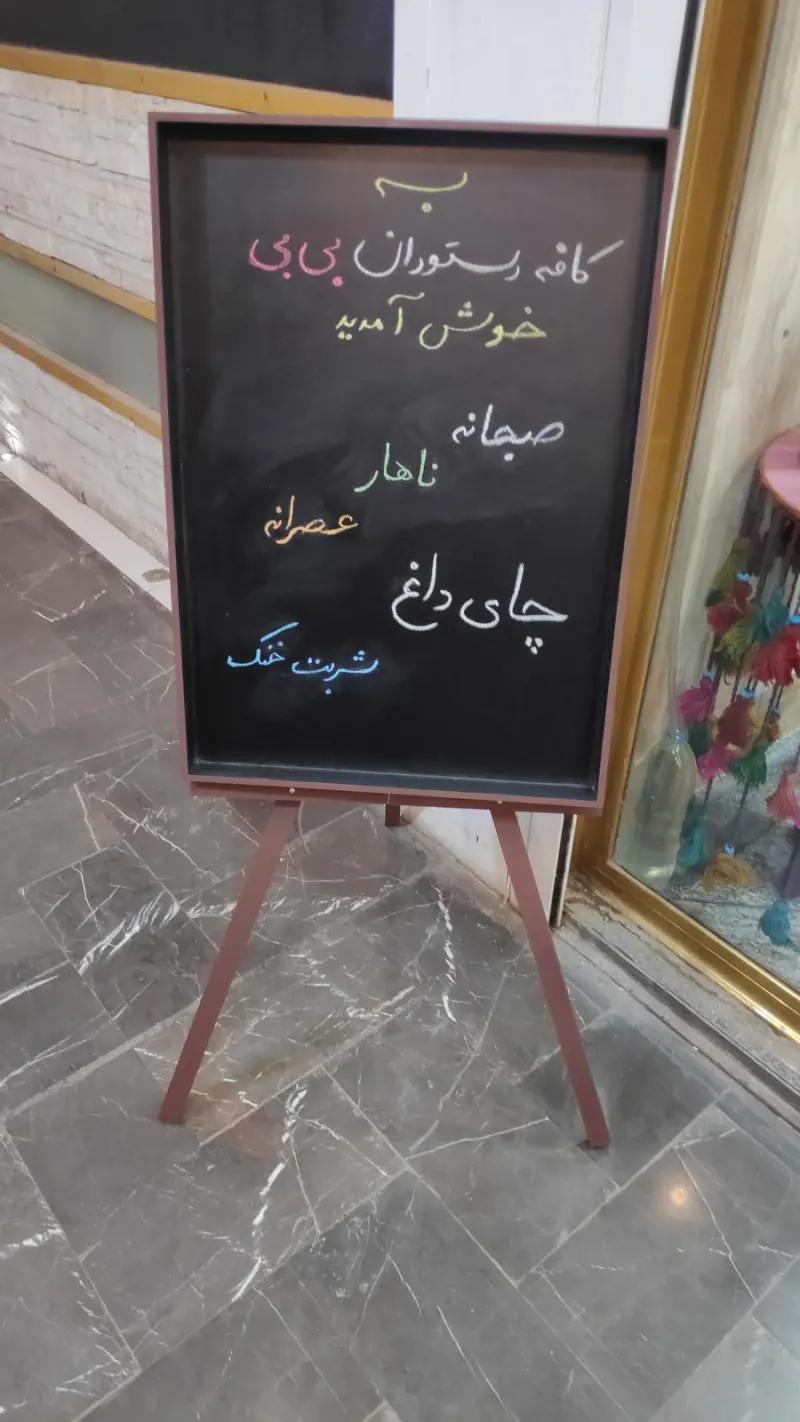 به
کافه رستوران بی بی
خوش آمدید
صبحانه
ناهار
عصرانه
چای داغ
شربت خنک